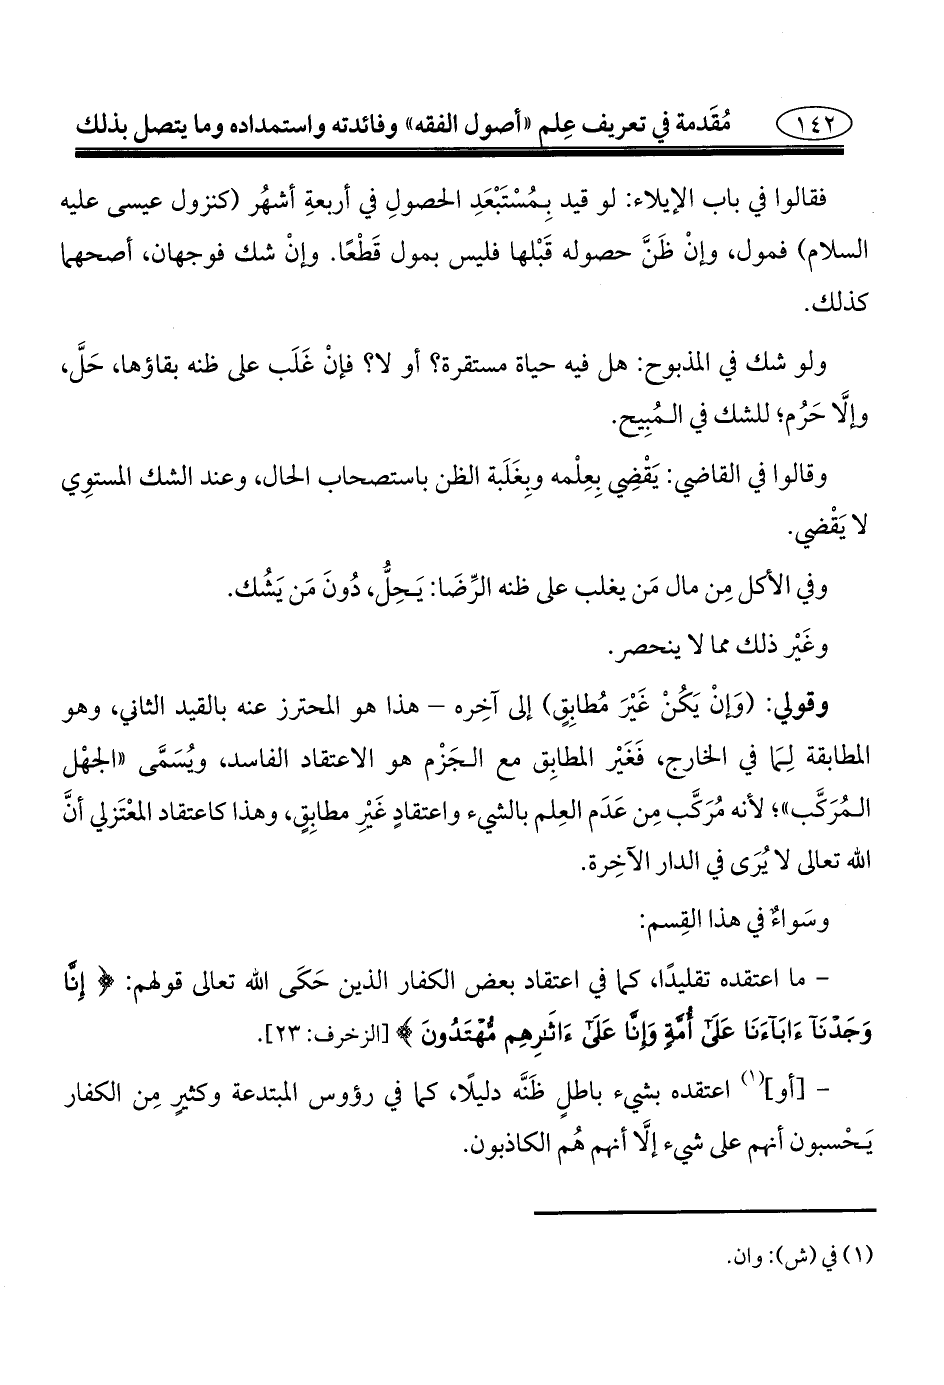 ١٤٢ مُقَدمة في تعريف عِلم «أصول الفقه» وفائدته واستمداده وما يتصل بذلك
فقالوا في باب الإيلاء: لو قيد بِمُسْتَبْعَدِ الحصولِ في أربعةِ أشهُر (كنزول عيسى عليه
السلام) فمول، وإنْ ظَنَّ حصوله قَبْلها فليس بمول قَطْعًا. وإنْ شك فوجهان، أصحهما
كذلك.
ولو شك في المذبوح: هل فيه حياة مستقرة؟ أو لا؟ فإنْ غَلَب على ظنه بقاؤها، حَلَّ،
وإلَّا حَرُم؛ للشك في المُبِيح.
وقالوا في القاضي: يَقْضِي بِعِلْمه وبِغَلَبة الظن باستصحاب الحال، وعند الشك المستوِي
لا يَقْضي.
وفي الأكل مِن مال مَن يغلب على ظنه الرِّضَا: يَحِلُّ، دُونَ مَن يَشُك.
وغَيْر ذلك مما لا ينحصر.
وقولي: (وَإنْ يَكُنْ غَيْرَ مُطابِقٍ) إلى آخِره – هذا هو المحترز عنه بالقيد الثاني، وهو
المطابقة لِمَا في الخارج، فَغَيْر المطابق مع الجَزْم هو الاعتقاد الفاسد، ويُسَمَّى «الجهْل
المُرَكَّب»؛ لأنه مُرَكَّب مِن عَدَم العِلم بالشيء واعتقادٍ غَيْرِ مطابِقٍ، وهذا كاعتقاد المعْتَزلي أنَّ
الله تعالى لا يُرَى في الدار الآخِرة.
وسَواءٌ في هذا القِسم:
– ما اعتقده تقليدًا، كما في اعتقاد بعض الكفار الذين حَكَى الله تعالى قولهم: ﴿ إِنَّا
وَجَدْنَآ ءَابَآءَنَا عَلَىٰٓ أُمَّةٍ وَإِنَّا عَلَىٰٓ ءَاثَٰرِهِم مُّهْتَدُونَ ﴾ [الزخرف: ٢٣].
– [أو](١) اعتقده بشيء باطلٍ ظَنَّه دليلًا، كما في رؤوس المبتدعة وكثيرٍ مِن الكفار
يَحْسبون أنهم على شيء إلَّا أنهم هُم الكاذبون.
(١) في (ش): وان.